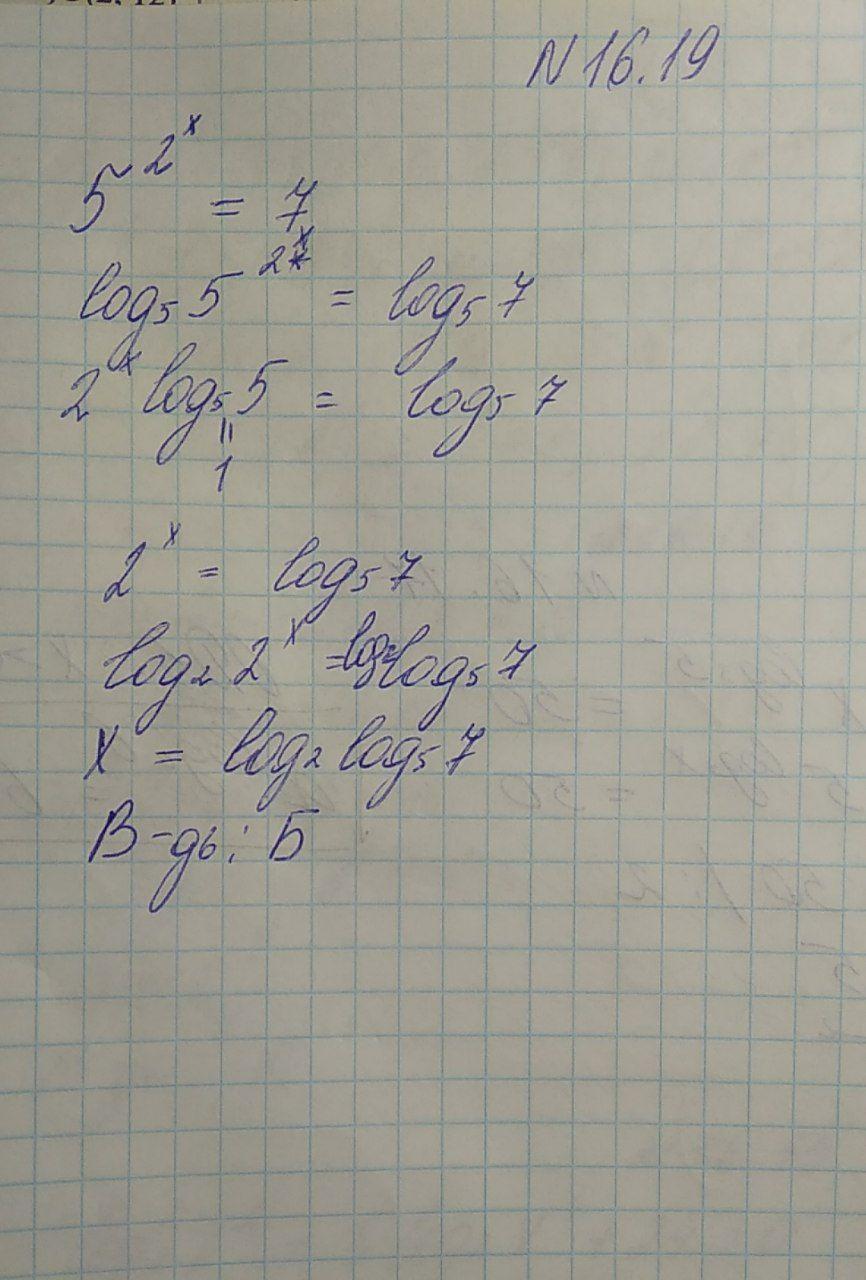 N 16.19
5^{2^x} = 7
log₅ 5^{2^x} = log₅ 7
2^x log₅ 5 = log₅ 7
॥
1
2^x = log₅ 7
log₂ 2^x = log₂ log₅ 7
x = log₂ log₅ 7
В-дь: Б